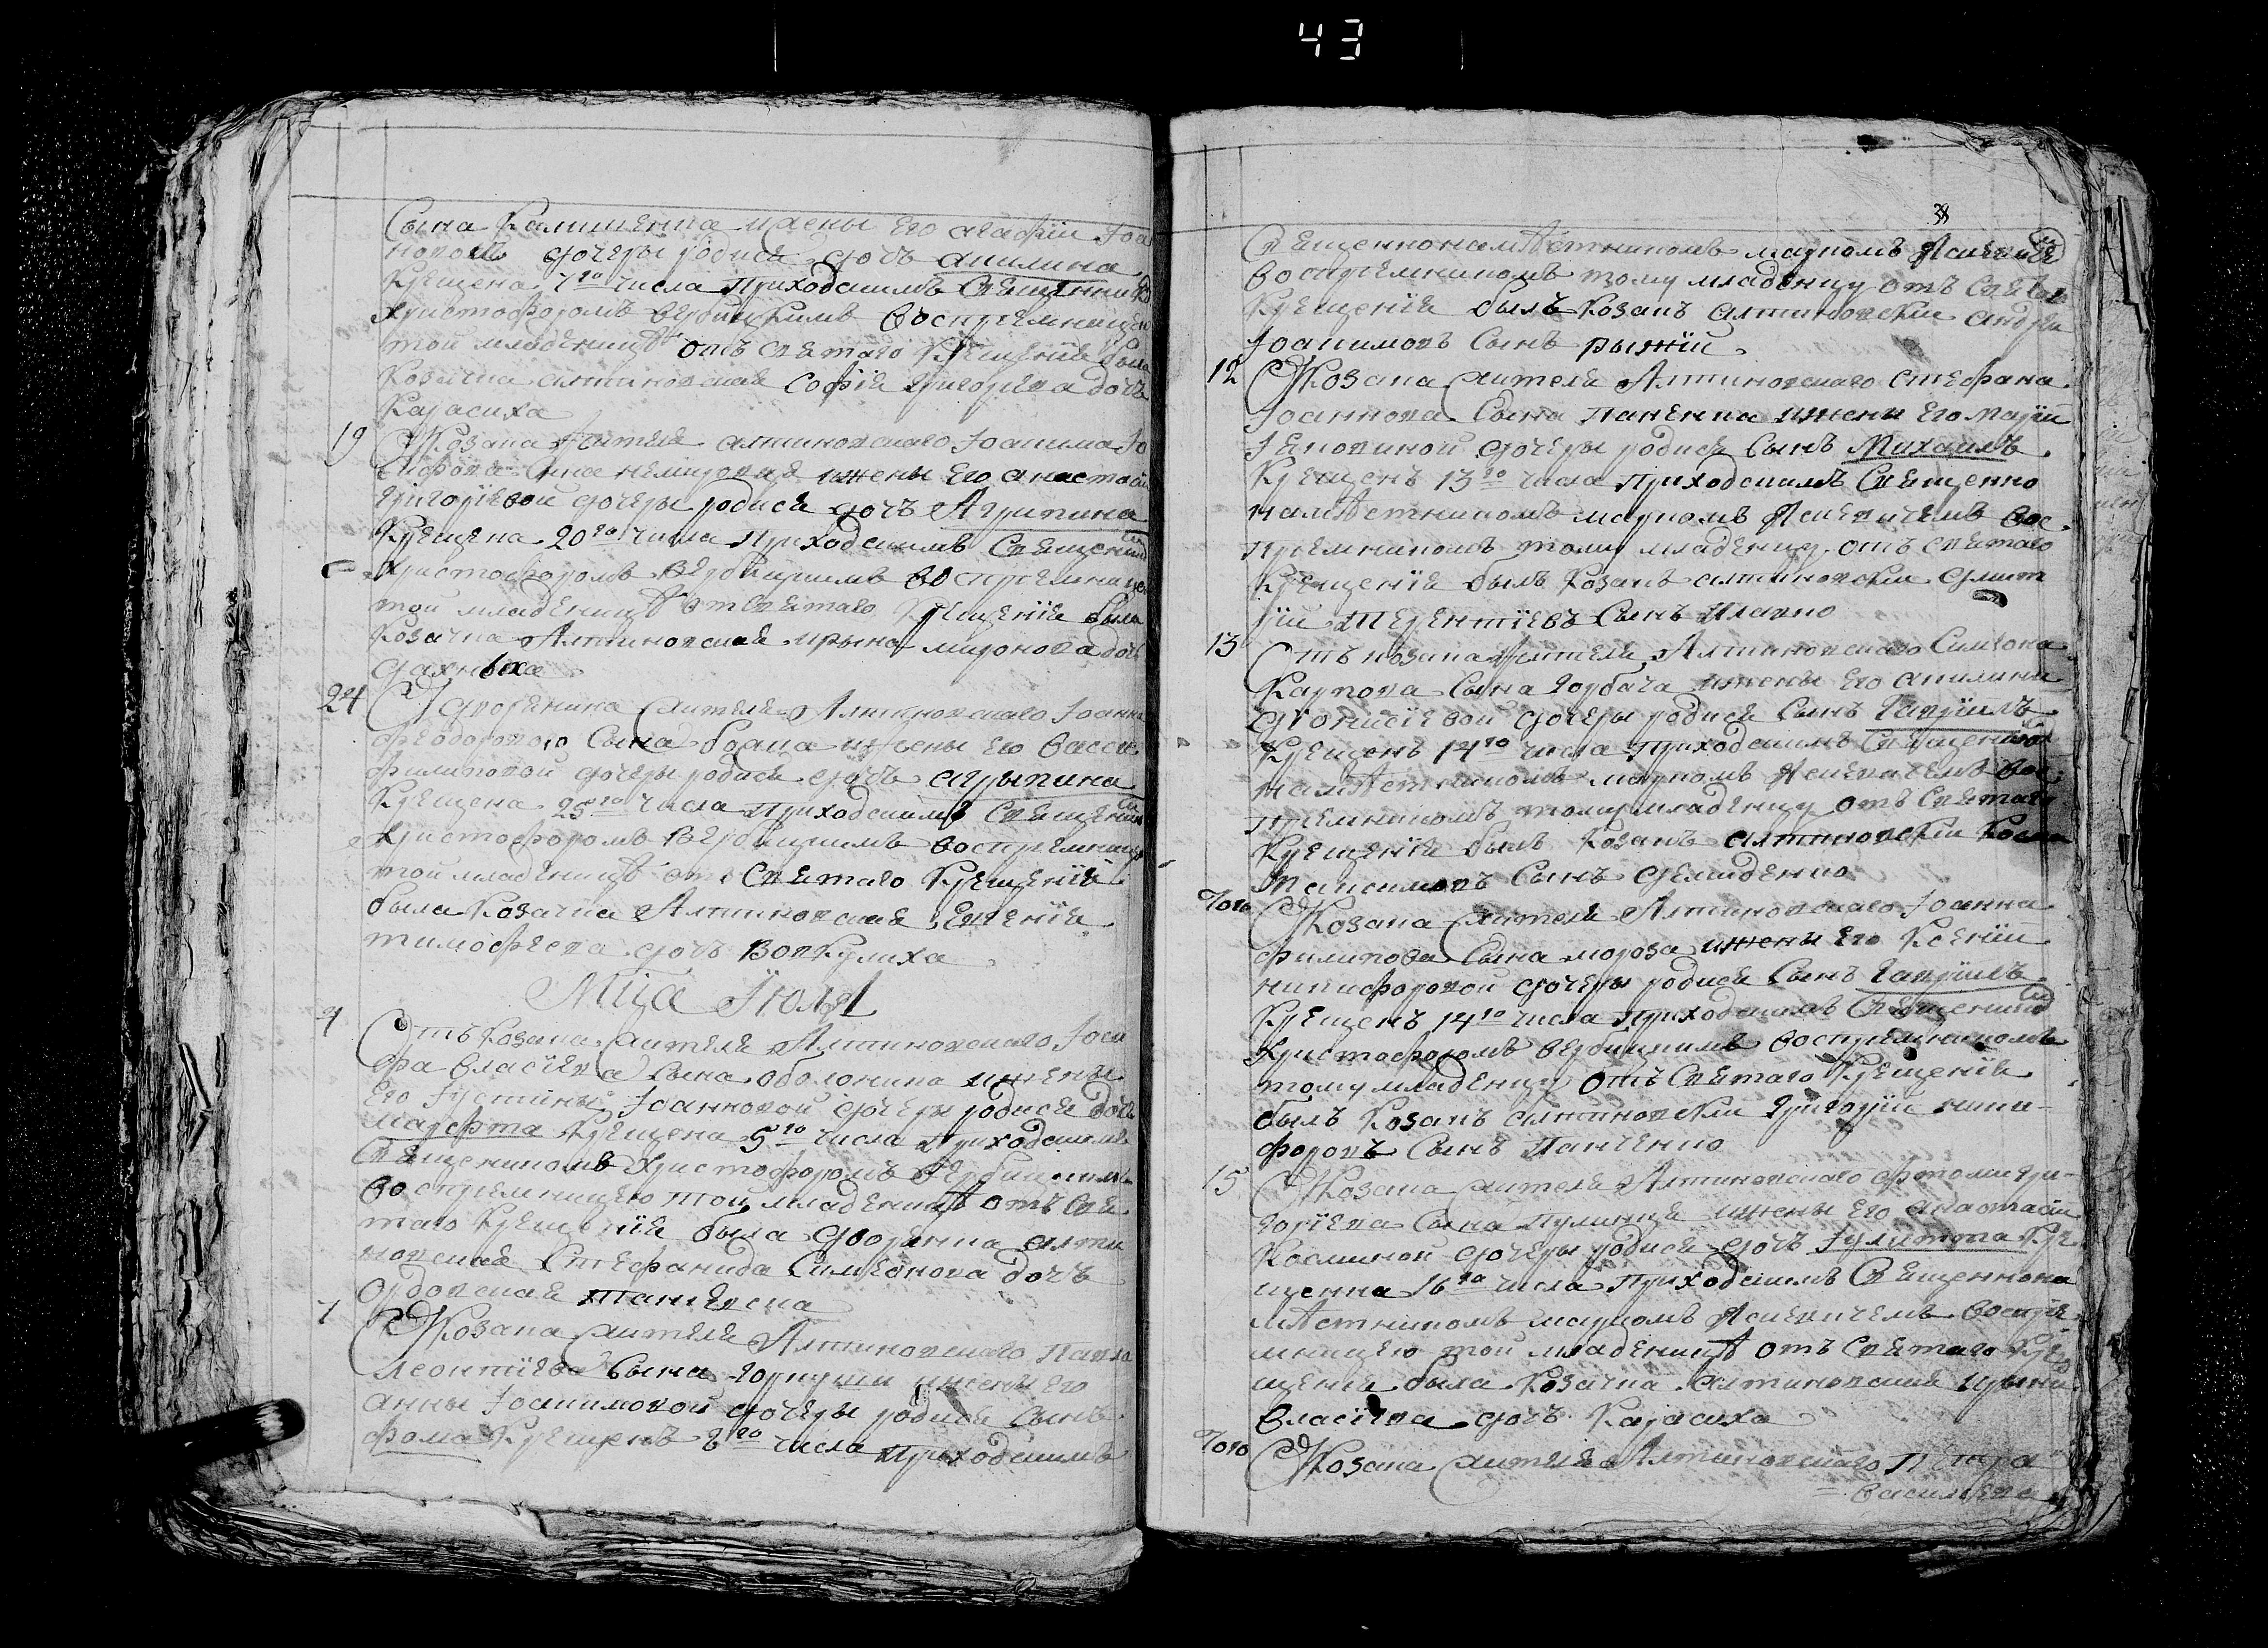 43
Сына Калиненка ижены Его Агафіи Іоа
новой дочеры родися дочь Акилина
Крещена 7го числа Приходскимъ Священник
Христофоромъ Вербицкимъ Воспріемницею
той младеницѣ отъ Святаго Крещенія была
Козачка алтиновская Софія Григорева дочь
Карасиха
19 У Козака жителя алтиновскаго Іоакима Іо
сифова Сина ижены Его Анастасіи
Григоріевой дочеры родися дочь Агрипина
Крещена 20го числа Приходскимъ Священник
Христофоромъ Вербицкимъ Воспріемницею
той младеницѣ от Святаго Крещенія была
Козачка Алтиновская Ирына Миронова доч
24 У дворенина жителя Алтиновскаго Іоанна
Феодорового Сына ижены Его Васси
Филиповой дочеры родися дочь Агрыпина
Крещена 25го числа Приходскимъ Священник
Христофоромъ Вербицкимъ Воспріемницею
той младеницѣ отъ Святаго Крещенія
была Козачка Алтиновская Евгенія
тимофеева дочь Вовкулиха
Мца Іюля
4 Отъ Козака жителя Алтиновскаго Іоси
фа Власіева Сына оболонника ижены
Его Іустины Іоанновой дочеры родися доч
Марфта Крещена 5го числа Приходскимъ
Священикомъ Христофоромъ Вербицкимъ
Воспріемницею той младеницѣ отъ Свя
таго Крещенія была дворянка алти
новская Стефанида Симеонова дочъ
Ордовская
7 У Козака жителя Алтиновскаго Павла
Леонтіева Сына ижены Его
Анны Іоакимовой дочеры родися Сынъ
Фома Крещенъ 8го числа Приходскимъ
Священнонамѣстникомъ маркомъ Ясневиче
Воспріемникомъ тому младенцу отъ Святаго
Крещенія былъ Козакъ алтиновскій Андрей
Іоакимовъ Сынъ Рыжій
12 У Козака жителя Алтиновскаго Стефана
Іоаннова Сына Паненка ижены Его Маріи
Іаковиной дочеры родися Сынъ Михаилъ
Крещенъ 13го числа Приходскимъ Священно
намѣстникомъ маркомъ Ясневичемъ Вос
пріемникомъ тому младенцу отъ Святаго
Крещенія былъ Козакъ алтиновскій Димит
рій Терентіевъ Сынъ
13 Отъ козака жителя Алтиновскаго Симеона
Карпова Сына Горбача ижены Его Акилини
Діонисіевой дочеры родися Сынъ Гавріилъ
Крещенъ 14го числа Приходскимъ Священно
намѣстникомъ маркомъ Ясневичемъ Вос
пріемникомъ тому младенцу отъ Святаго
Крещенія былъ Козакъ алтиновскій Косма
Максимовъ Сынъ Демиденко
Того У Козака жителя Алтиновскаго Іоанна
Филипова Сына мороза ижены Его Ксеніи
Никифоровой дочеры родися Сынъ Гавріилъ
Крещенъ 14го числа Приходскимъ Священик
Христофоромъ Вербицкимъ Воспріемникомъ
тому младенцу отъ Святаго Крещенія
былъ Козакъ алтиновскій Григорій ники-
форовъ Сынъ Панченко
15 У Козака жителя Алтиновскаго Фтоми Гри-
горіева Сына ижены Его Анастасіи
Косминой дочеры родися дочъ Іулитта Кре
щенна 16го числа Приходскимъ Священнона
мѣстникомъ маркомъ Ясневичемъ Воспріе
мницею той младеницѣ отъ Святаго Кре
щенія была Козачка алтиновская Ирина
Власіева дочъ Карасиха
Того У Козака жителя Алтиновскаго Петра
Василева